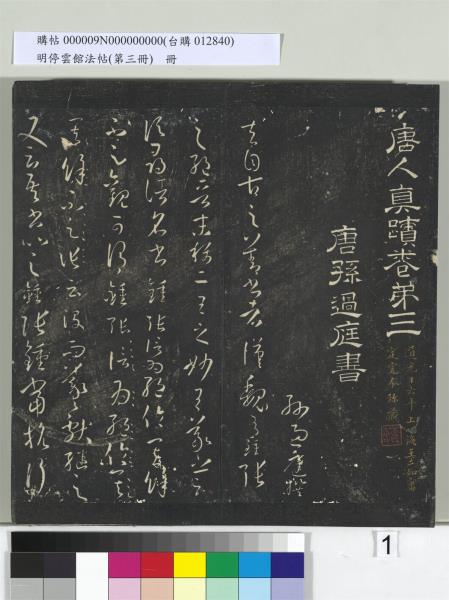 購帖 000009N000000000(台購 012840)
明停雲館法帖(第三冊) 冊
唐人真蹟卷第三
唐孫過庭書
孫過庭撰
夫自古之善書者漢魏有鍾張
之絕晉末稱二王之妙王羲之云
頃尋諸名書鍾張信為絕倫其餘
不足觀可謂鍾張信為絕倫其
餘不足觀云沒而羲獻繼之
又云吾書比之鍾張鍾當抗行
1